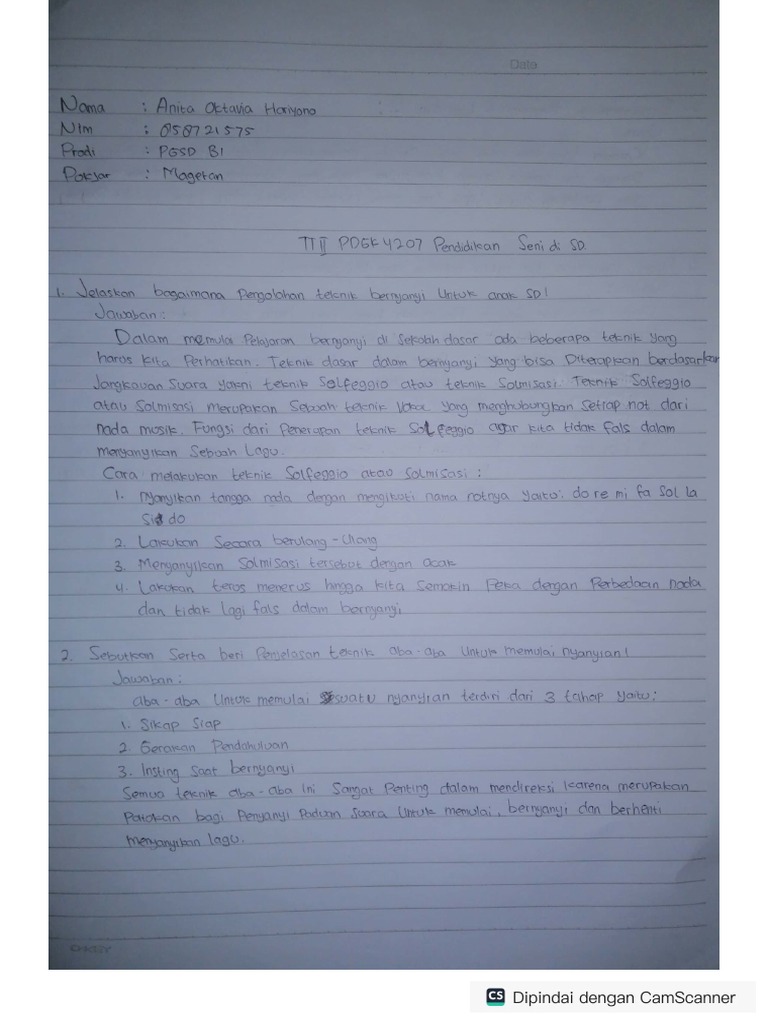 Date
Nama : Anita Oktavia Hariyono
NIm : 858721575
Prodi : PGSD BI
Pokjar : Magetan
TT II PDGK4207 Pendidikan Seni di SD
1. Jelaskan bagaimana Pengolahan teknik bernyanyi Untuk anak SD!
Jawaban :
Dalam memulai Pelajaran bernyanyi di Sekolah dasar ada beberapa teknik yang
harus kita Perhatikan. Teknik dasar dalam bernyanyi yang bisa Diterapkan berdasarkan
Jangkauan Suara yakni teknik Solfeggio atau teknik Solmisasi. Teknik Solfeggio
atau Solmisasi merupakan Sebuah teknik Vokal yang menghubungkan Setiap not dari
nada musik. Fungsi dari Penerapan teknik Solfeggio agar kita tidak fals dalam
menyanyikan Sebuah Lagu.
Cara melakukan teknik Solfeggio atau Solmisasi :
1. Nyanyikan tangga nada dengan mengikuti nama notnya yaitu: do re mi fa Sol la
Si do
2. Lakukan Secara berulang-Ulang
3. Menyanyikan Solmisasi tersebut dengan acak
4. Lakukan terus menerus hingga kita Semakin Peka dengan Perbedaan nada
dan tidak lagi fals dalam bernyanyi
2. Sebutkan Serta beri Penjelasan teknik aba-aba Untuk memulai nyanyian!
Jawaban :
aba-aba Untuk memulai Suatu nyanyian terdiri dari 3 tahap yaitu:
1. Sikap Siap
2. Gerakan Pendahuluan
3. Insting Saat bernyanyi
Semua teknik aba-aba Ini Sangat Penting dalam mendireksi karena merupakan
Patokan bagi Penyanyi Paduan Suara Untuk memulai, bernyanyi dan berhenti
menyanyikan lagu.
CS Dipindai dengan CamScanner